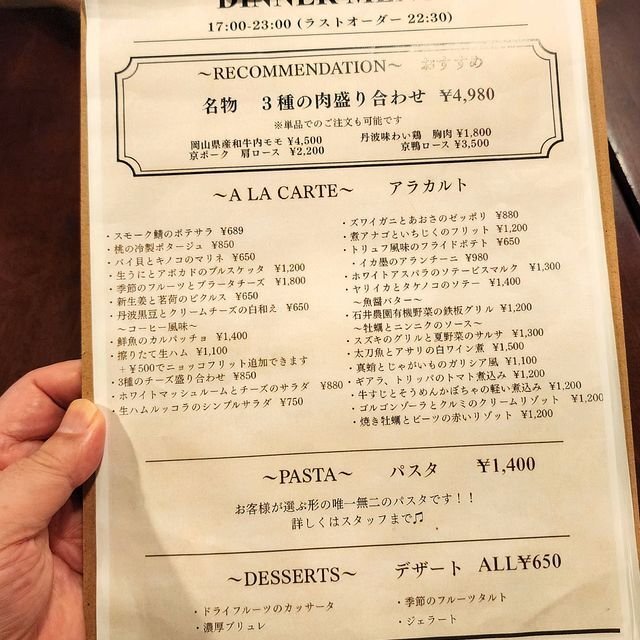 DINNER MEN
17:00-23:00 (ラストオーダー 22:30)
～RECOMMENDATION～ おすすめ
名物 3種の肉盛り合わせ ¥4,980
※単品でのご注文も可能です
岡山県産和牛内モモ ¥4,500
丹波味わい鶏 胸肉 ¥1,800
京ポーク 肩ロース ¥2,200
京鴨ロース ¥3,500
～A LA CARTE～ アラカルト
・スモーク鯖のポテサラ ¥689
・桃の冷製ポタージュ ¥850
・バイ貝とキノコのマリネ ¥550
・生うにとアボカドのブルスケッタ ¥1,200
・季節のフルーツとブラータチーズ ¥1,800
・新生姜と茗荷のピクルス ¥650
・丹波黒豆とクリームチーズの白和え ¥650
～コーヒー風味～
・鮮魚のカルパッチョ ¥1,400
・擦りたて生ハム ¥1,100
＋¥500でニョッコフリット追加できます
・3種のチーズ盛り合わせ ¥850
・ホワイトマッシュルームとチーズのサラダ ¥880
・生ハムルッコラのシンプルサラダ ¥750
・ズワイガニとあおさのゼッポリ ¥880
・煮アナゴといちじくのフリット ¥1,200
・トリュフ風味のフライドポテト ¥650
・イカ墨のアランチーニ ¥980
・ホワイトアスパラのソテービスマルク ¥1,300
・ヤリイカとタケノコのソテー ¥1,400
～魚醤バター～
・石井農園有機野菜の鉄板グリル ¥1,200
～牡蠣とニンニクのソース～
・スズキのグリルと夏野菜のサルサ ¥1,300
・太刀魚とアサリの白ワイン煮 ¥1,500
・真蛸とじゃがいものガリシア風 ¥1,100
・ギアラ、トリッパのトマト煮込み ¥1,200
・牛すじとそうめんかぼちゃの軽い煮込み ¥1,200
・ゴルゴンゾーラとクルミのクリームリゾット ¥1,200
・焼き牡蠣とビーツの赤いリゾット ¥1,200
～PASTA～ パスタ ¥1,400
お客様が選ぶ形の唯一無二のパスタです！！
詳しくはスタッフまで♫
～DESSERTS～ デザート ALL¥650
・ドライフルーツのカッサータ
・濃厚ブリュレ
・季節のフルーツタルト
・ジェラート